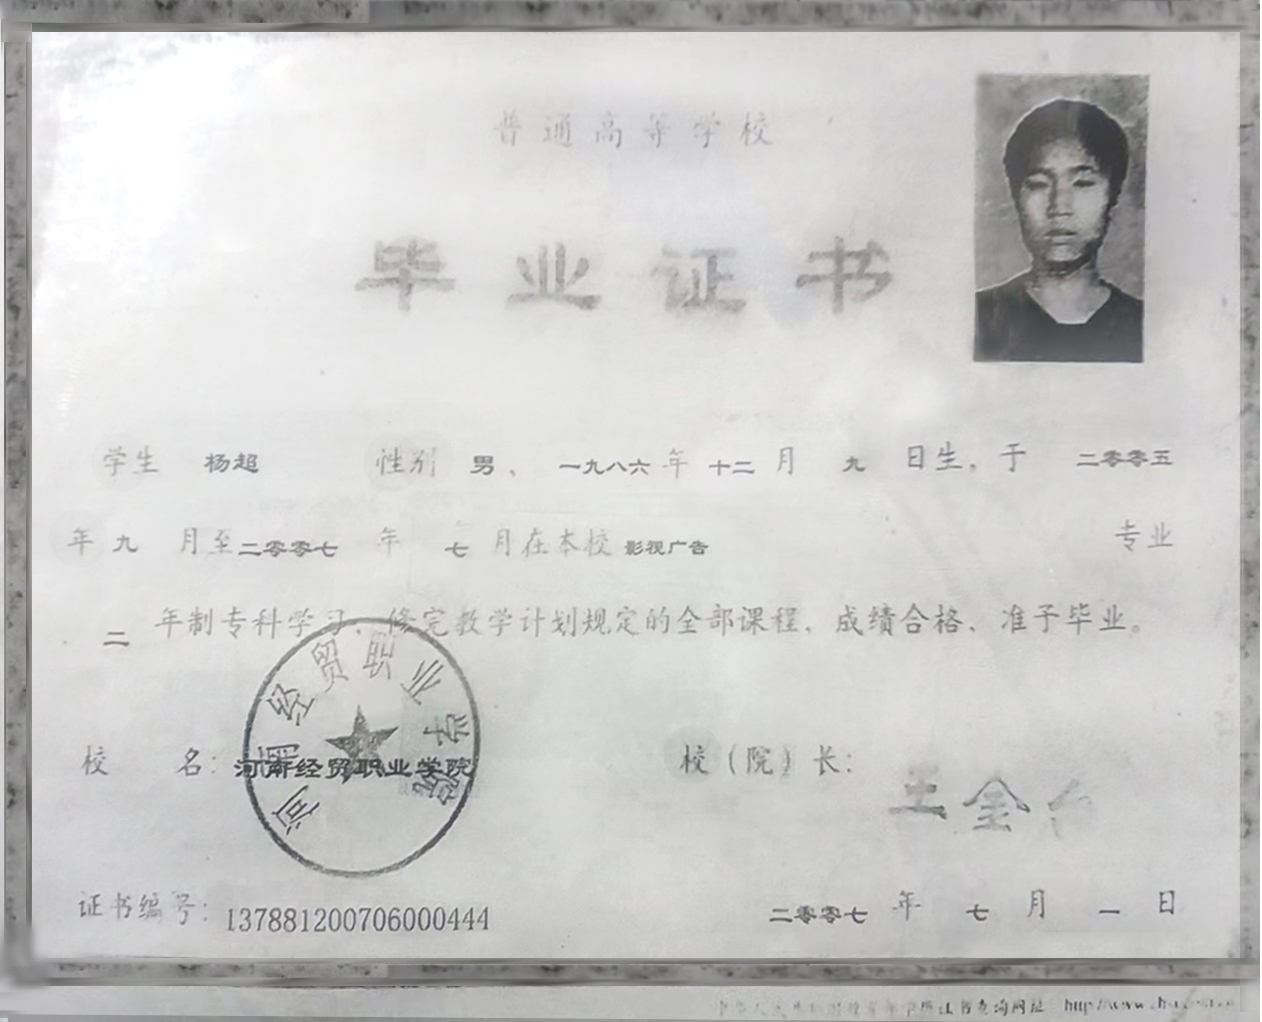 普通高等学校
毕业证书
学生 杨超 性别 男、一九八六年十二月九日生,于 二零零五
年九月至二零零七年七月在本校影视广告 专业
二年制专科学习、修完教学计划规定的全部课程、成绩合格、准予毕业。
河南经贸职业学院
校 名:河南经贸职业学院 校(院)长:
王金
证书编号:137881200706000444 二零零七年七月一日
书查询网址 http://www.